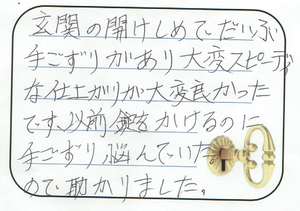 玄関の開けしめでだいぶ
手こずりがあり大変スピーディ
な仕上がりが大変良かった
です、以前、鍵をかけるのに
手こずり悩んでいた
ので助かりました。